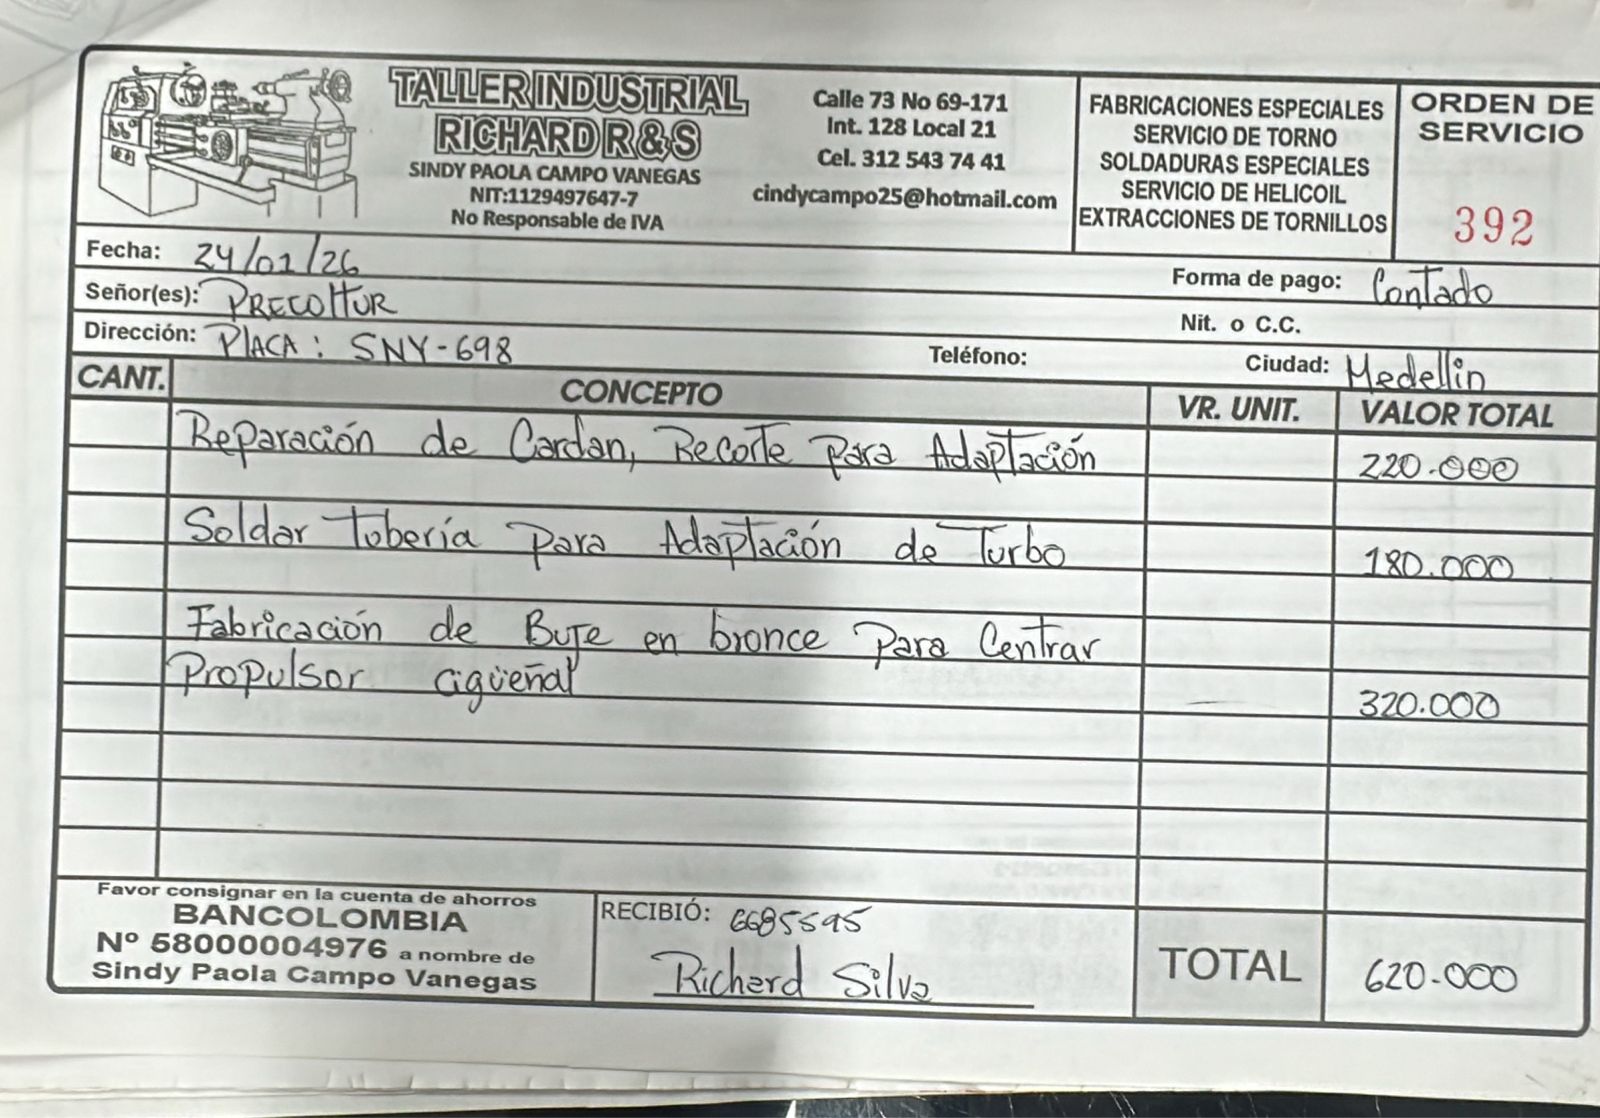 TALLER INDUSTRIAL
RICHARD R & S
SINDY PAOLA CAMPO VANEGAS
NIT:1129497647-7
No Responsable de IVA
Calle 73 No 69-171
Int. 128 Local 21
Cel. 312 543 74 41
cindycampo25@hotmail.com
FABRICACIONES ESPECIALES
SERVICIO DE TORNO
SOLDADURAS ESPECIALES
SERVICIO DE HELICOIL
EXTRACCIONES DE TORNILLOS
ORDEN DE
SERVICIO
392
Fecha: 24/01/26
Forma de pago: Contado
Señor(es): PRECOLTUR
Nit. o C.C.
Dirección: PLACA: SNY-698
Teléfono:
Ciudad: Medellin
CANT. CONCEPTO VR. UNIT. VALOR TOTAL
Reparación de Cardan, Recorte para Adaptación 220.000
Soldar Tubería para Adaptación de Turbo 180.000
Fabricación de Buje en bronce para Centrar
Propulsor cigüeñal 320.000
Favor consignar en la cuenta de ahorros
BANCOLOMBIA
Nº 58000004976 a nombre de
Sindy Paola Campo Vanegas
RECIBIÓ: 6685595
Richard Silva
TOTAL 620.000